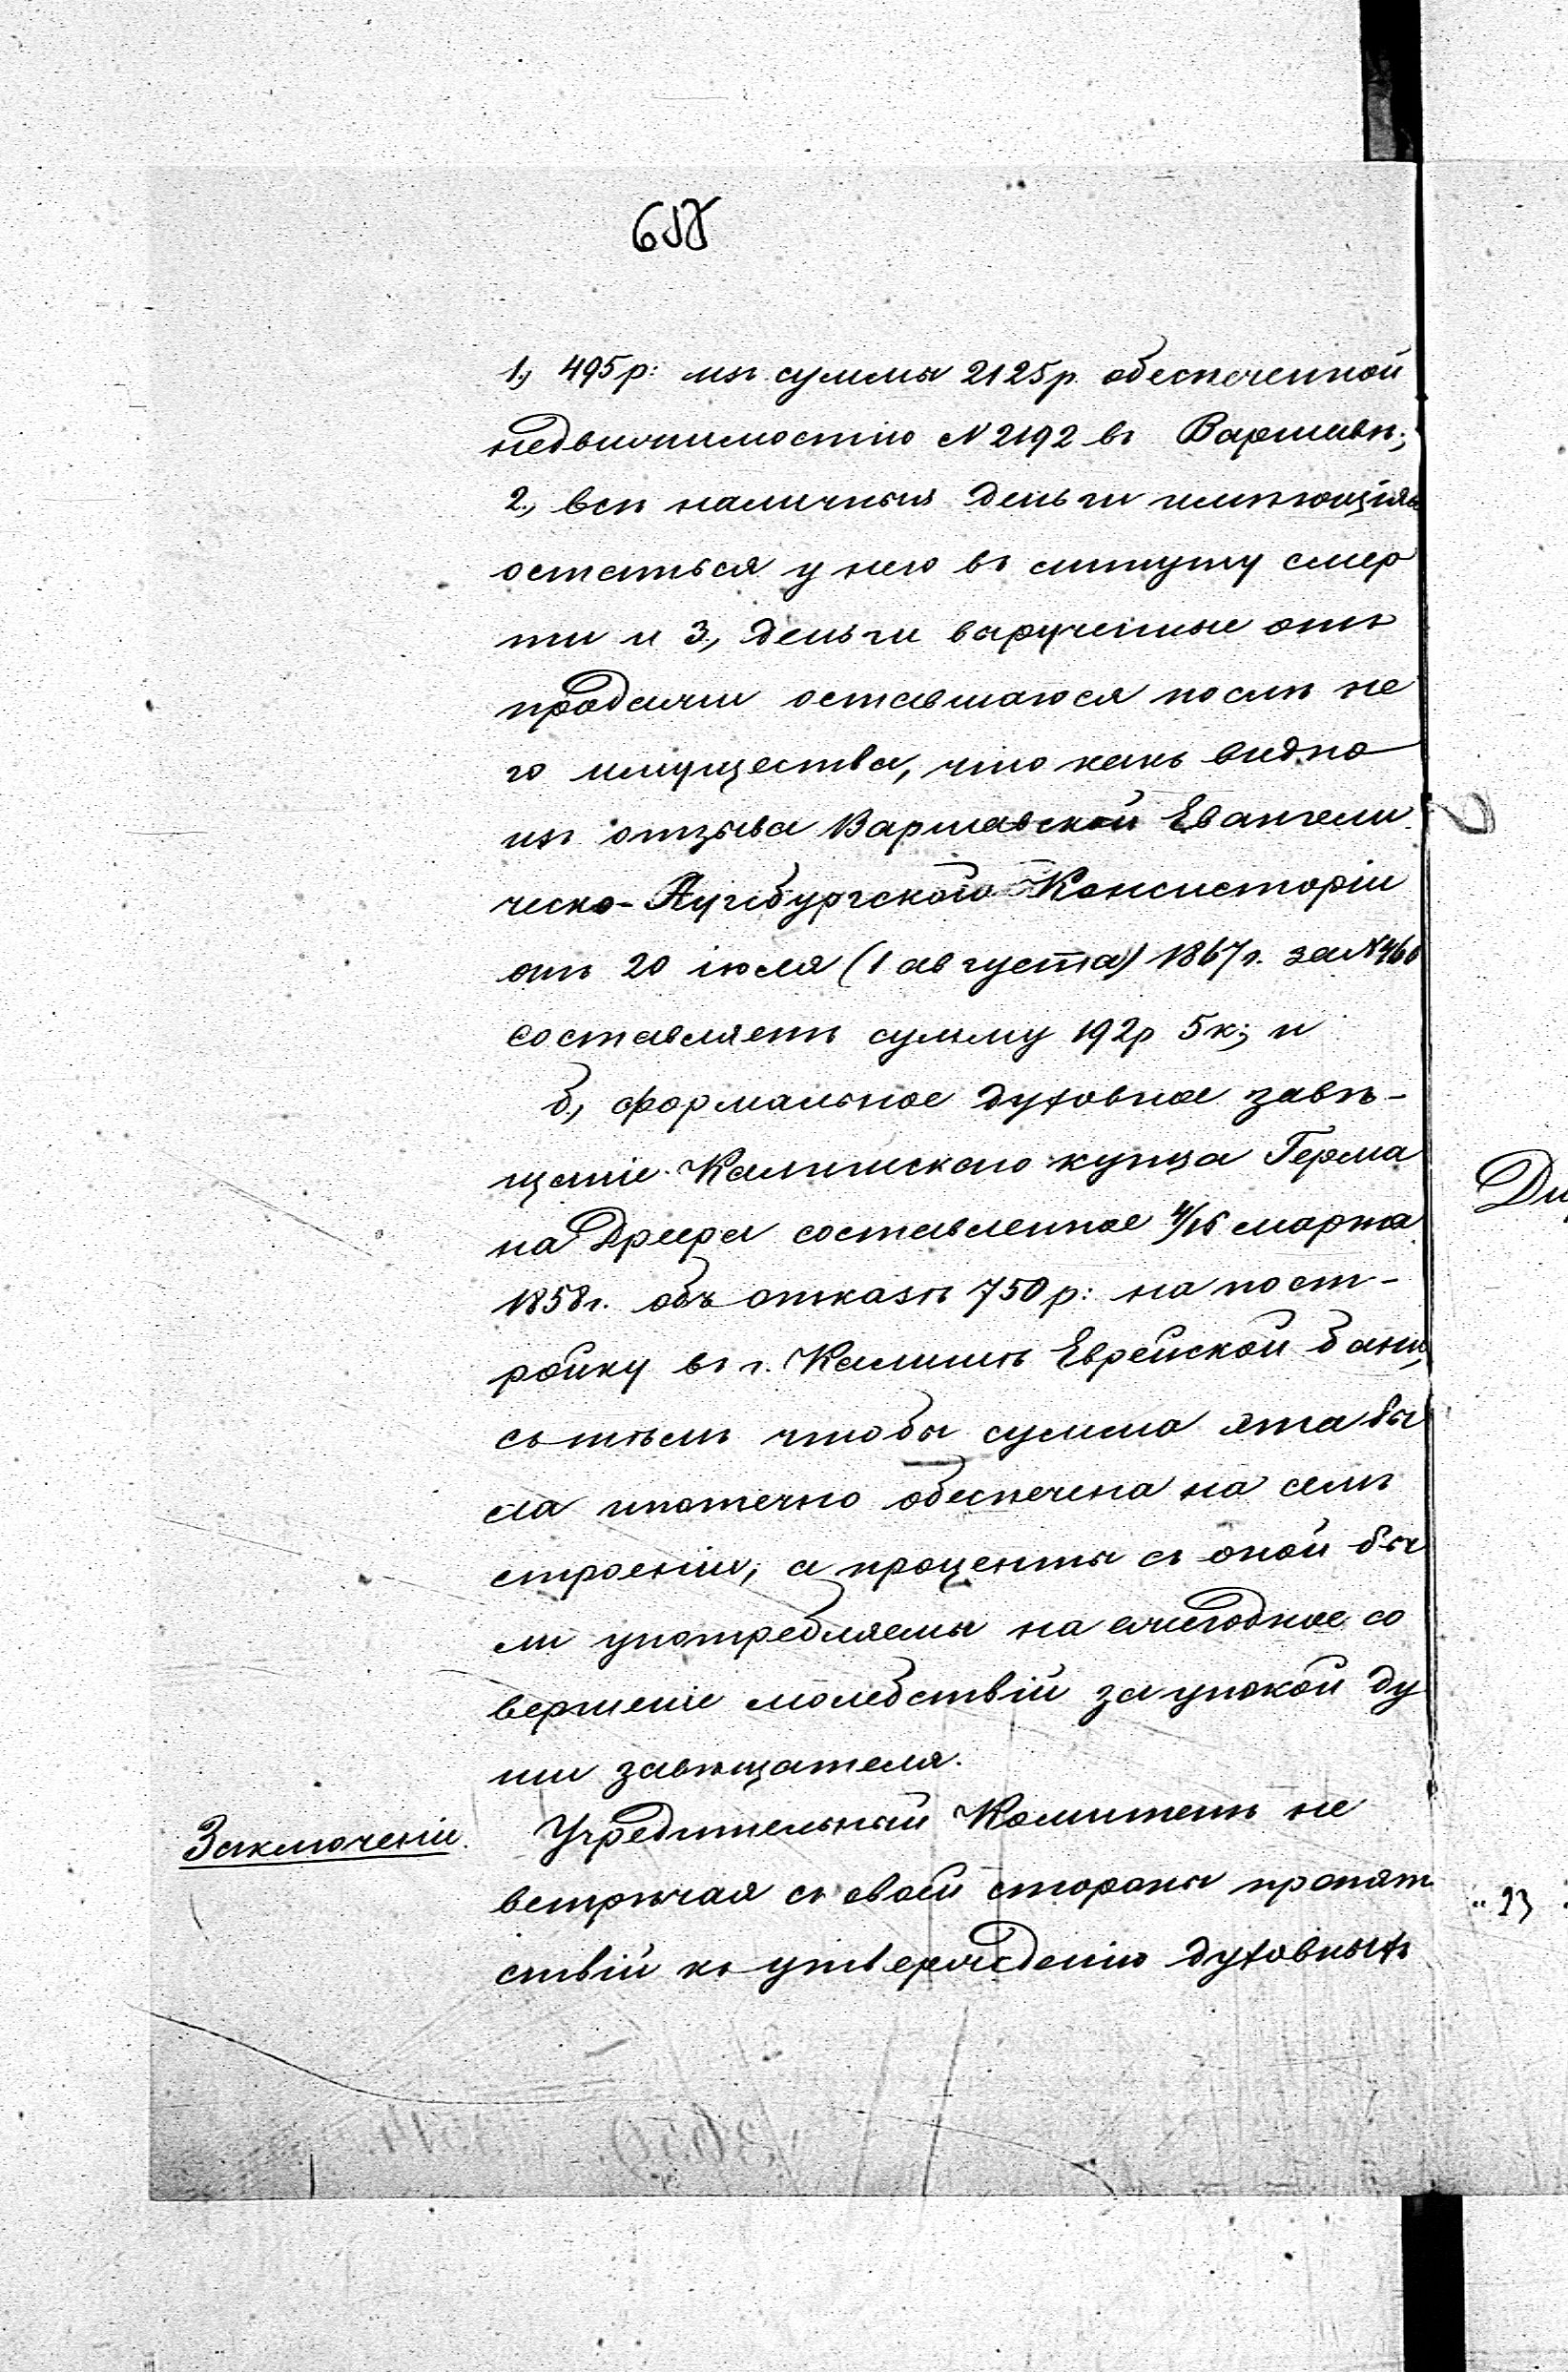 1., 495р: изъ суммы 2125р. обеспеченной
недвижимостію N 2192 въ Варшавѣ;
2., всѣ наличныя деньги имѣющіяся
остаться у него въ минуту смер
ти и 3., деньги вырученные отъ
продажи оставшагося послѣ не
го имущества, что какъ видно
изъ отзыва Варшавской Евангели
ческо-Аугсбургскаго Консисторіи
отъ 20 іюля (1 августа) 1867г. за N 466
составляетъ сумму 192р 5к; и
б., формальное духовное завѣ-
щаніе Калишскаго купца Герма
на Дреера составленное 4/16 марта
1858г. объ отказѣ 750р: на пост-
ройку въ г. Калишѣ Еврейской бани,
съ тѣмъ чтобы сумма эта бы
ла ипотечно обеспечена на семъ
строеніи, а проценты съ оной бы
ли употребляемы на ежегодное со
вершеніе молебствій за упокой ду
ши завѣщателя.
Заключеніе. Учредительный Комитетъ не
встрѣчая съ своей стороны препят
ствій къ утвержденію духовныхъ